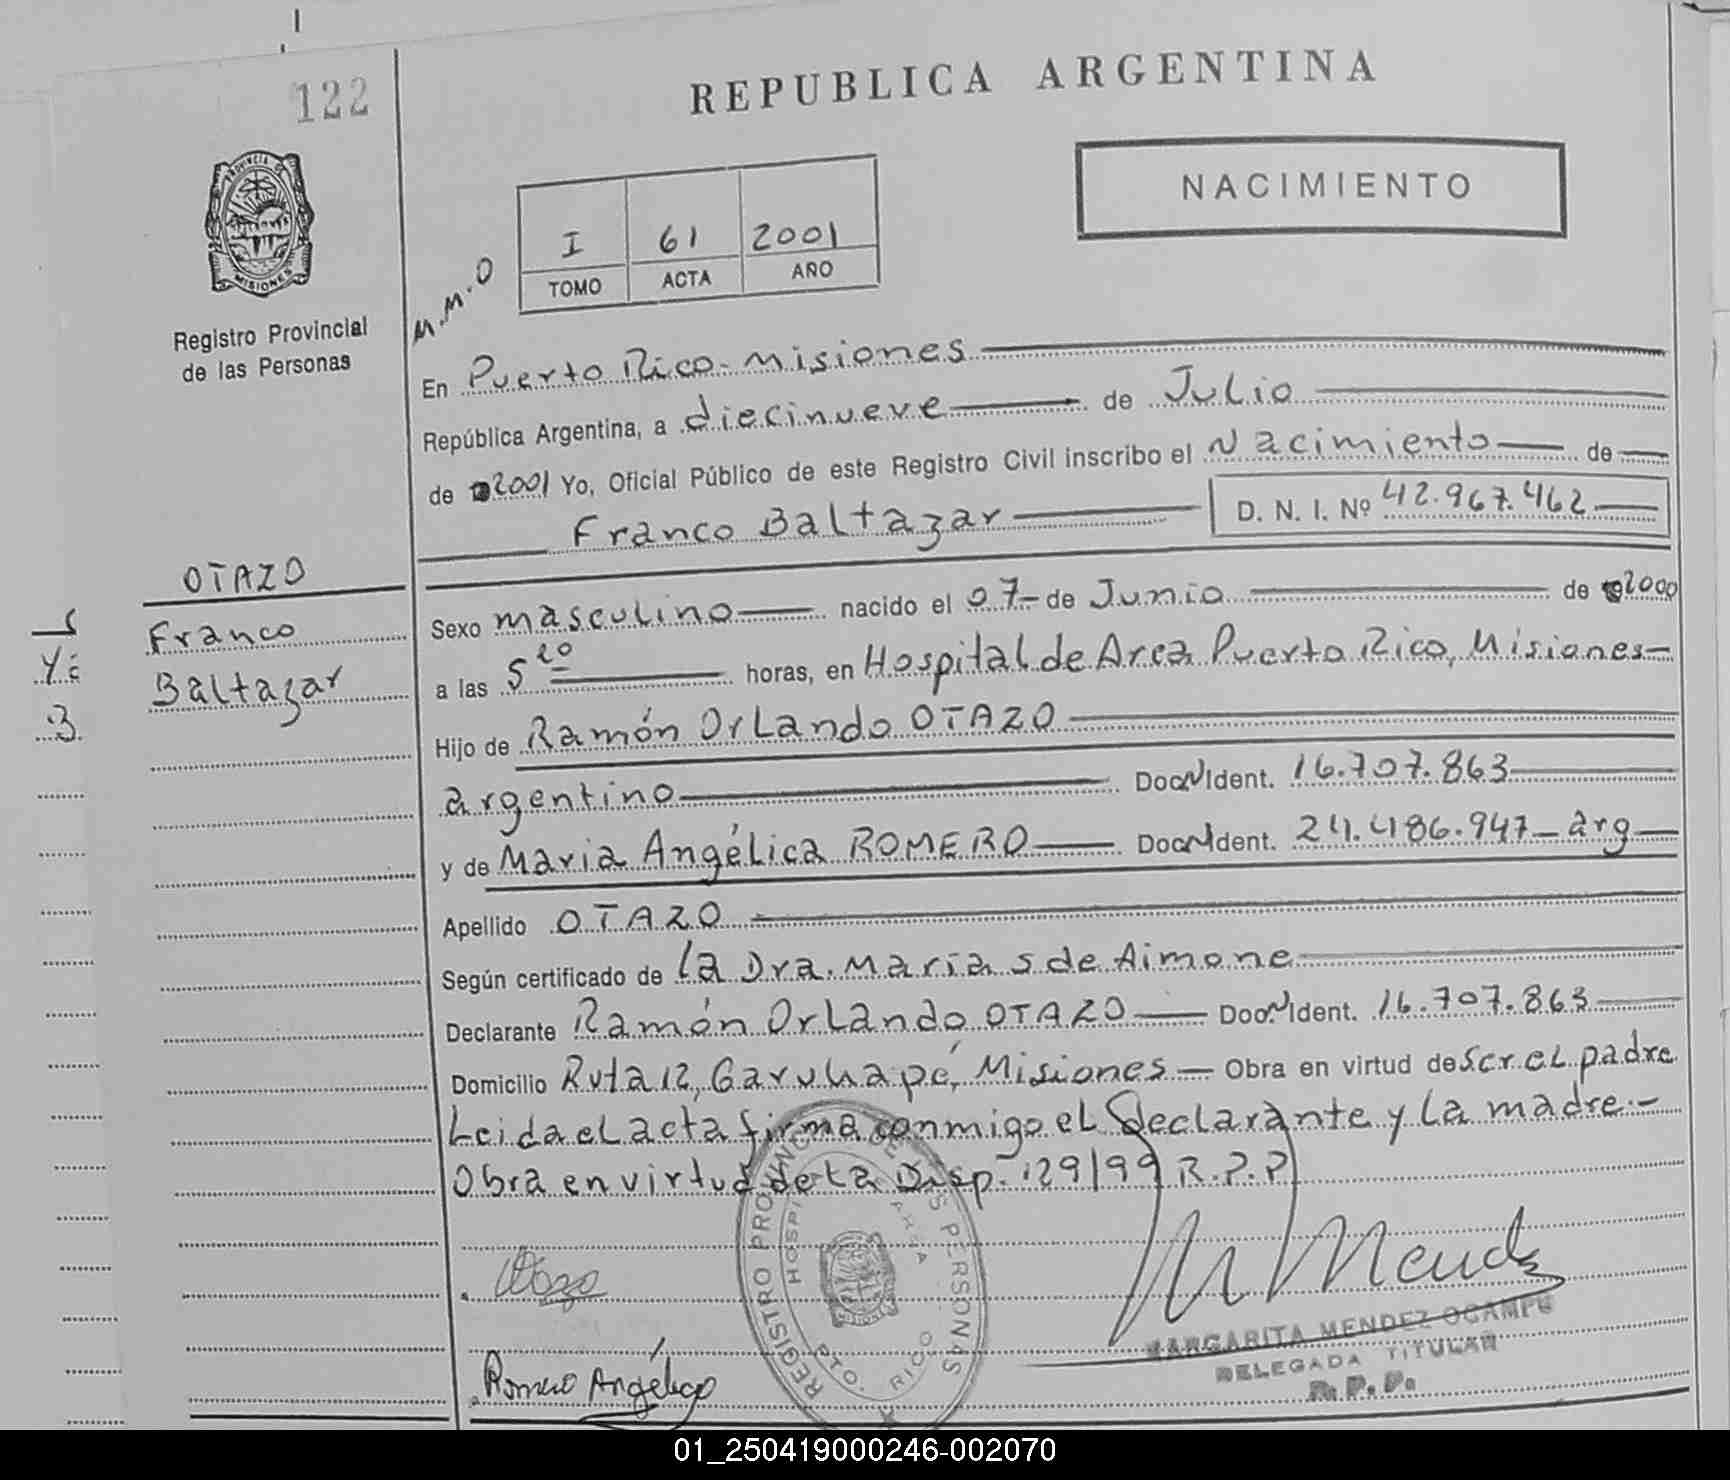 122
REPUBLICA ARGENTINA
PROVINCIA DE
MISIONES
Registro Provincial
de las Personas
NACIMIENTO
I 61 2001
TOMO ACTA AÑO
M.M.O
En Puerto Rico - Misiones
República Argentina, a diecinueve de Julio
de 2001 Yo, Oficial Público de este Registro Civil inscribo el Nacimiento de
Franco Baltazar D. N. I. Nº 42.967.462
OTAZO
Franco
Baltazar
Sexo masculino nacido el 07 de Junio de 2000
a las 5 horas, en Hospital de Area Puerto Rico, Misiones
Hijo de Ramón Orlando OTAZO
argentino Doc N Ident. 16.707.863
y de Maria Angélica ROMERO Doc N Ident. 24.486.947 - arg
Apellido OTAZO
Según certificado de la Dra. Maria S de Aimone
Declarante Ramón Orlando OTAZO Doc. N Ident. 16.707.863
Domicilio Ruta 12, Garuhapé, Misiones - Obra en virtud de Ser el padre
Leida el acta firma conmigo el declarante y la madre.-
Obra en virtud de la Disp. 129/99 R.P.P
REGISTRO PROVINCIAL DE LAS PERSONAS
HOSPITAL AREA
PTO. RICO
MISIONES
Otazo
M Mendez
MARGARITA MENDEZ OCAMPO
DELEGADA TITULAR
R.P.P.
Romero Angélica
01_250419000246-002070